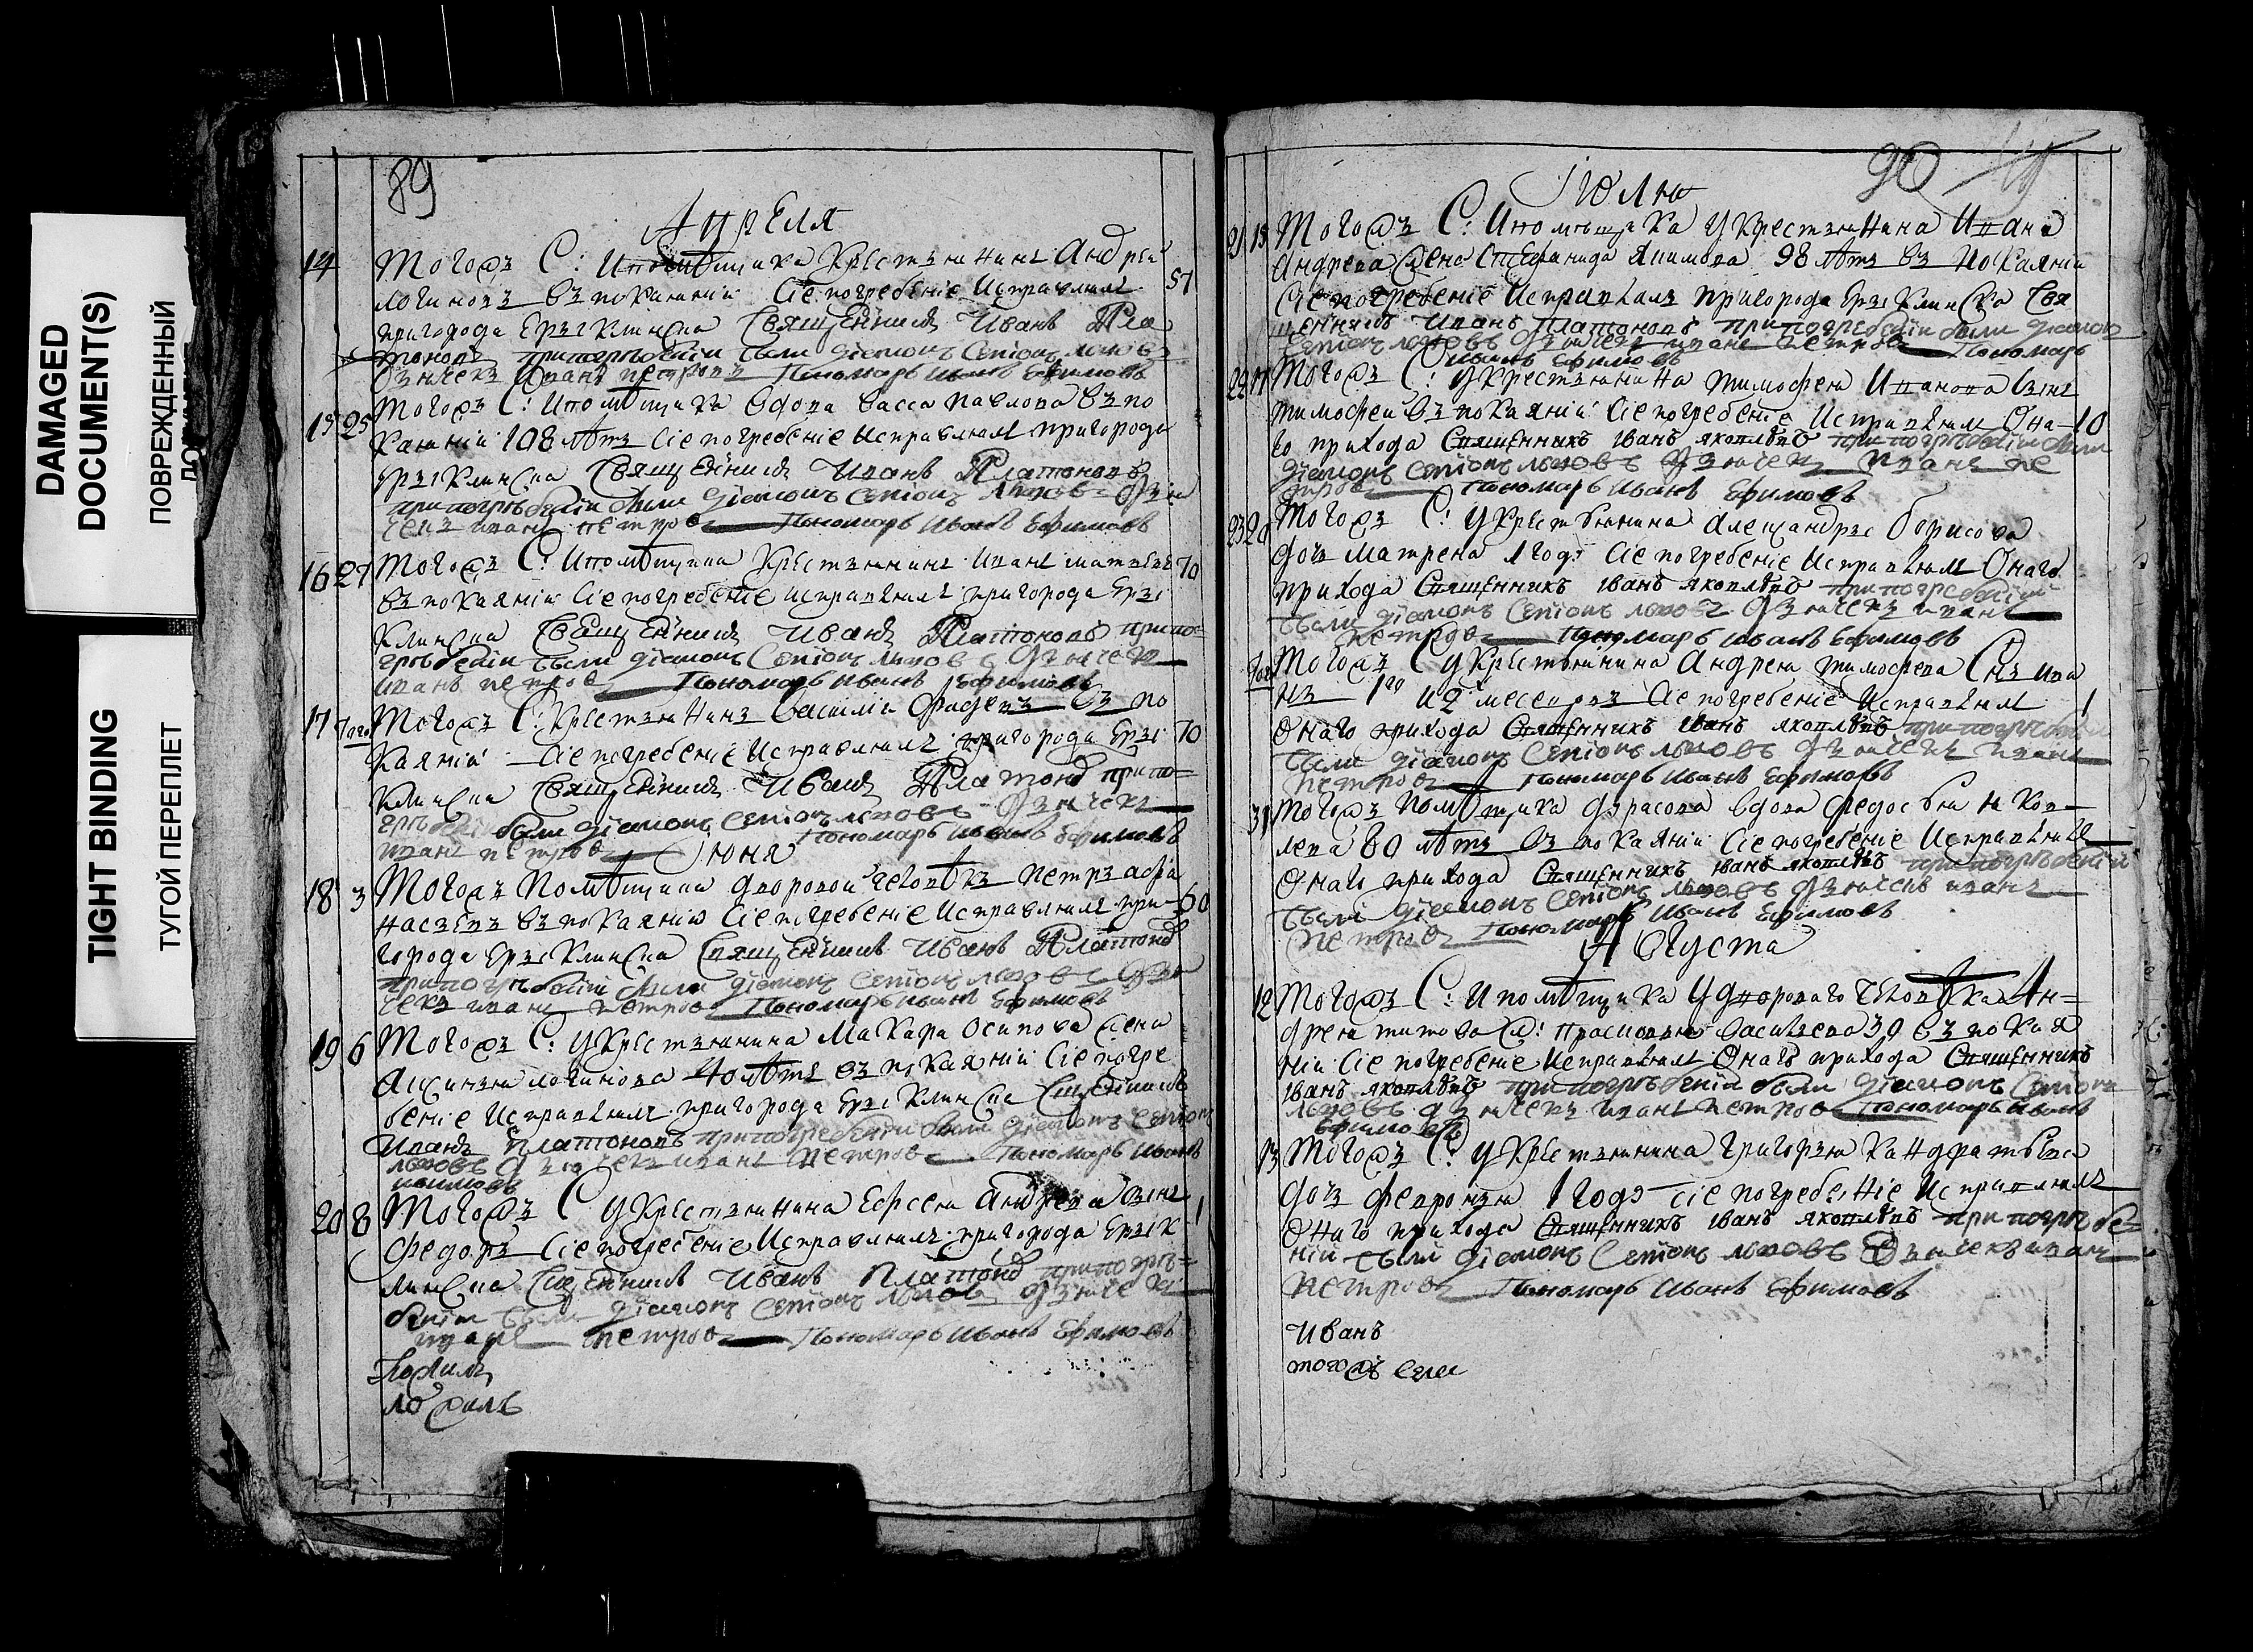 DAMAGED
DOCUMENT(S)
ПОВРЕЖДЕННЫЙ
TIGHT BINDING
ТУГОЙ ПЕРЕПЛЕТ
89
Апреля
14 Тогожъ С: Ипомѣщика крестьянинъ Андрей 57
логиновъ въ покаянии Сіе погребеніе Исправлялъ
пригорода Ерыклинска Священникъ Иванъ Пла
тоновъ при погрѣбеніи были діаконъ Семіонъ львовъ
дьячекъ Иванъ петровъ Пономарь Иванъ Ефимовъ
15 25 Тогожъ С: Ипомѣщика вдова васса павлова въ по
каянии 108 лѣтъ Сіе погребеніе исправлялъ пригорода
Ерыклинска Священникъ Иванъ Платоновъ
при погрѣбеніи были діаконъ Семіонъ львовъ дья
чекъ иванъ петровъ Пономарь Иванъ Ефимовъ
16 27 Тогожъ С: Ипомѣщика крестьянинъ Иванъ матвѣевъ 70
въ покаянии Сіе погребеніе исправлялъ пригорода Еры
клинска Священникъ Иванъ Платоновъ при по=
грѣбеніи были діаконъ Семіонъ львовъ дьячекъ
иванъ петровъ Пономарь Иванъ Ефимовъ
17 Того Тогожъ С: крестьянинъ василій въ по 70
каянии Сіе погребеніе Исправлялъ пригорода Еры
клинска Священникъ Иванъ Платоновъ при по=
грѣбеніи были діаконъ Семіонъ львовъ дьячекъ
иванъ петровъ Пономарь Иванъ Ефимовъ
Июня
18 3 Тогожъ Помѣщика дворовой человѣкъ петръ афа 60
насьевъ въ покаянию Сіе погребеніе исправлялъ при
города Ерыклинска Священникъ Иванъ Платоновъ
при погрѣбеніи были діаконъ Семіонъ львовъ дья
чекъ иванъ петровъ Пономарь Иванъ Ефимовъ
19 6 Тогожъ С: У крестьянина Макара осипова жена
логинова 40 лѣтъ въ покаянии Сіе погре
беніе исправлялъ пригорода Ерыклинска Сщенникъ
Иванъ Платоновъ при погребеніи были діаконъ Семіонъ
львовъ дьячекъ иванъ петровъ Пономарь Иванъ
20 8 Тогожъ С У крестьянина Андреева сынъ 1
федоръ Сіе погребеніе Исправлялъ пригорода Ерык
линска Сщенникъ Иванъ Платоновъ при погрѣ=
беніи были діаконъ Семіонъ львовъ дьячекъ
иванъ петровъ Пономарь Иванъ Ефимовъ
90
Июля
21 15 Тогожъ С: Ипомѣщика У крестьянина Ивана
Андреева жена Стефанида Якимова 98 лѣтъ въ покаянии
Сіе погребеніе Исправлялъ пригорода Ерыклинска Свя
щенникъ Иванъ Платоновъ при погребеніи были діаконъ
Семіонъ львовъ дьячекъ иванъ петровъ Пономарь
Иванъ Ефимовъ
22 17 Тогожъ С: У крестьянина тимофея Иванова сынъ
тимофей въ покаянии Сіе погребеніе Исправлялъ Она= 10
го прихода Священникъ Іванъ яковлѣвъ при погрѣбеніи были
діаконъ Семіонъ львовъ дьячекъ иванъ пе
тровъ Пономарь Иванъ Ефимовъ
23 20 Тогожъ С: У крестьянина Александры борисова
дочь матрена 1 годъ Сіе погребеніе Исправлялъ Онаго
прихода Священникъ Іванъ яковлѣвъ при погребеніи
были діаконъ Семіонъ львовъ дьячекъ иванъ
петровъ Пономарь Иванъ Ефимовъ
Того Тогожъ С У крестьянина Андрея тимофеева Снъ ива
нъ 1го и 2 месецовъ Сіе погребеніе Исправлялъ 1
Онаго прихода Священникъ Іванъ яковлѣвъ при погрѣбеніи
были діаконъ Семіонъ львовъ дьячекъ иванъ
петровъ Пономарь Иванъ Ефимовъ
31 Тогожъ помѣщика вдова федосья яков=
лева 80 лѣтъ въ покаянии Сіе погребеніе Исправлялъ
Онаго прихода Священникъ Іванъ яковлѣвъ при погрѣбеніи
были діаконъ Семіонъ львовъ дьячекъ иванъ
петровъ Пономарь Иванъ Ефимовъ
Августа
12 Тогожъ С: Ипомѣщика У двороваго человѣка Ан=
дрея титова ж: васильева 30 въ покая
нии Сіе погребеніе Исправлялъ Онаго прихода Священникъ
Іванъ яковлѣвъ при погрѣбеніи были діаконъ Семіонъ
львовъ дьячекъ иванъ петровъ Пономарь Иванъ
Ефимовъ
13 Тогожъ С: У крестьянина григорья кандратьева
дочь февронья 1 годъ Сіе погребеніе Исправлялъ
Онаго прихода Священникъ Іванъ яковлѣвъ при погрѣбе=
ніи были діаконъ Семіонъ львовъ дьячекъ иванъ
петровъ Пономарь Иванъ Ефимовъ
Иванъ
тогожъ села